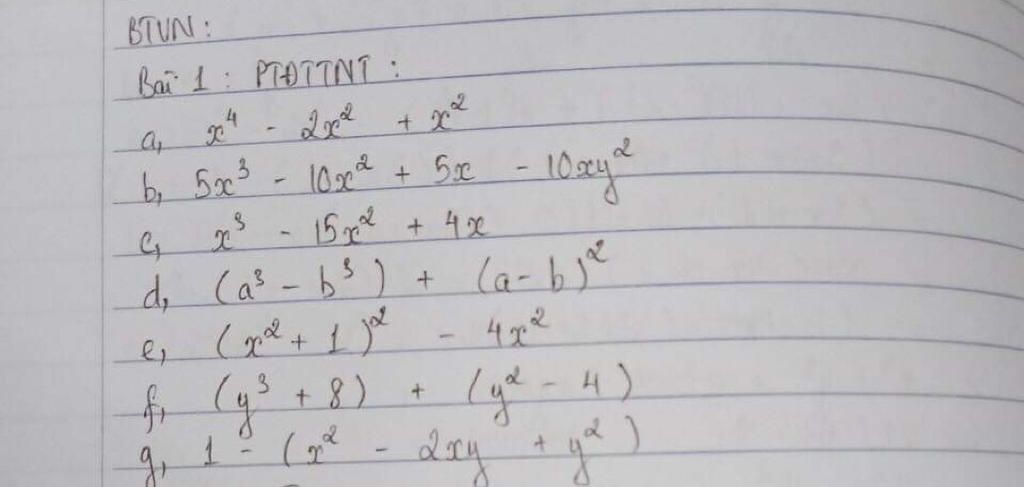 BTVN :
Bài 1 : PTĐTTNT :
a, x⁴ - 2x² + x²
b, 5x³ - 10x² + 5x - 10xy²
c, x³ - 15x² + 4x
d, (a³ - b³) + (a - b)²
e, (x² + 1)² - 4x²
f, (y³ + 8) + (y² - 4)
g, 1 - (x² - 2xy + y²)